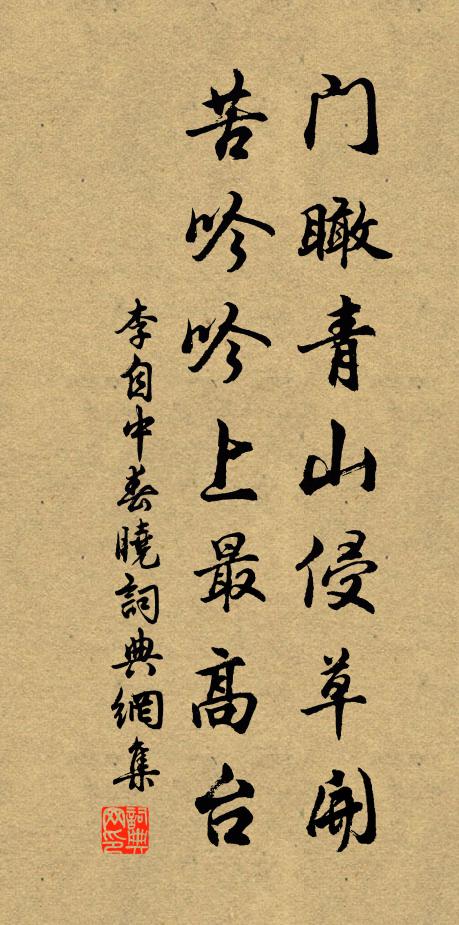 門瞰青山侵草開
苦吟吟上最高台
李自中春曉詞典網集
詞典网印